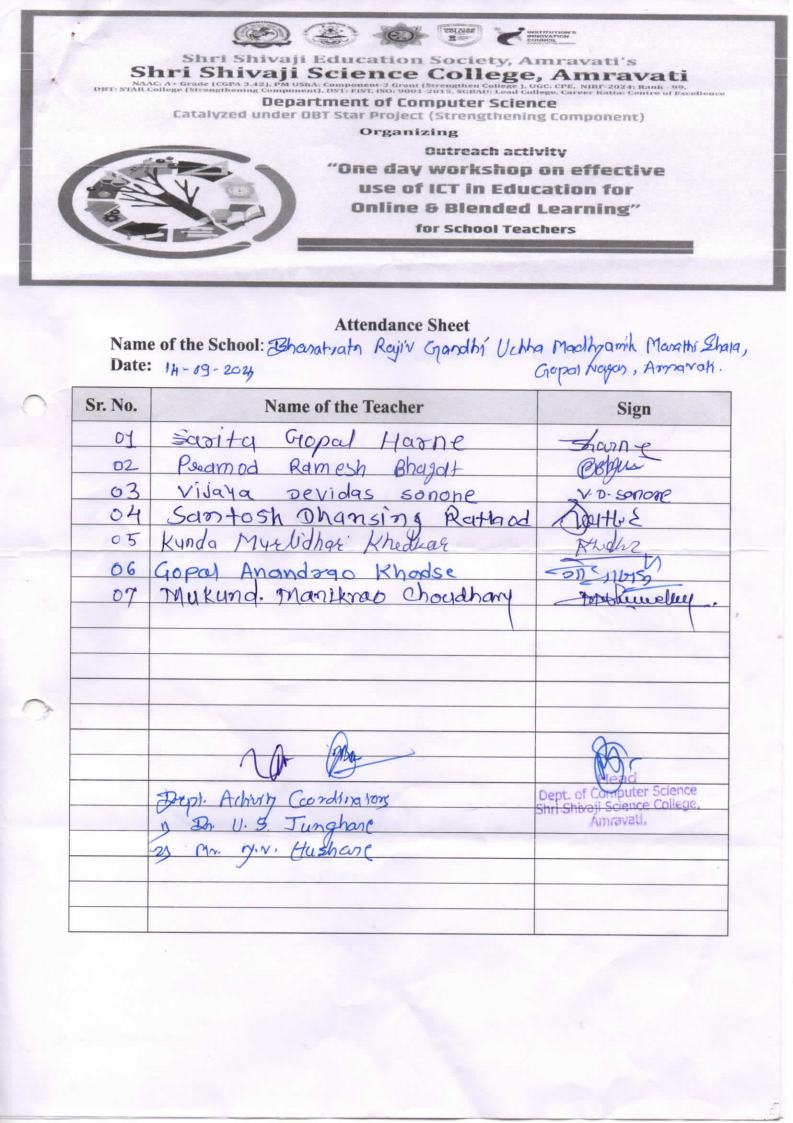 INSTITUTION'S INNOVATION COUNCIL
Shri Shivaji Education Society, Amravati's
Shri Shivaji Science College, Amravati
NAAC: A+ Grade (CGPA 3.42), PM USHA: Component-2 Grant (Strengthen College), UGC: CPE, NIRF-2024: Rank - 99,
DBT: STAR College (Strengthening Component), DST: FIST, ISO: 9001-2015, SGBAU: Lead College, Career Katta: Centre of Excellence
Department of Computer Science
Catalyzed under DBT Star Project (Strengthening Component)
Organizing
Outreach activity
"One day workshop on effective
use of ICT in Education for
Online & Blended Learning"
for School Teachers
Attendance Sheet
Name of the School: Bharatratn Rajiv Gandhi Uchha Madhyamik Marathi Shala,
Date: 14-09-2024 Gopal Nagar, Amravati.
Sr. No. Name of the Teacher Sign
01 Sarita Gopal Harne Sharne
02 Pramod Ramesh Bhagat
03 Vijaya Devidas sonone V.D. sonone
04 Santosh Dhansing Rathod
05 Kunda Murlidhar Khedkar
06 Gopal Anandrao Khodse
07 Mukund. Manikrao Choudhary
Head
Dept. of Computer Science
Shri Shivaji Science College,
Amravati.
Dept. Activity Coordinators
1) Dr. U. S. Junghare
2) Mr. Y.V. Hushare